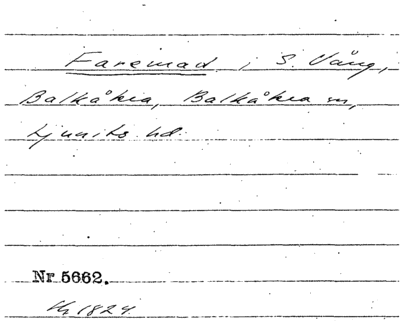 Faremad i S. Vång,
Balkåkra, Balkåkra sn,
Ljunits hd.
Nr 5662.
1824